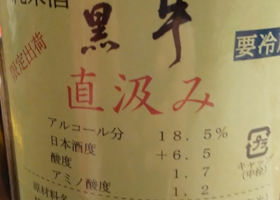 純米酒
黒牛
限定出荷
要冷
直汲み
アルコール分 18.5%
日本酒度 +6.5
酸度 1.7
アミノ酸度 1.2
原材料名
キャップ
(中栓)